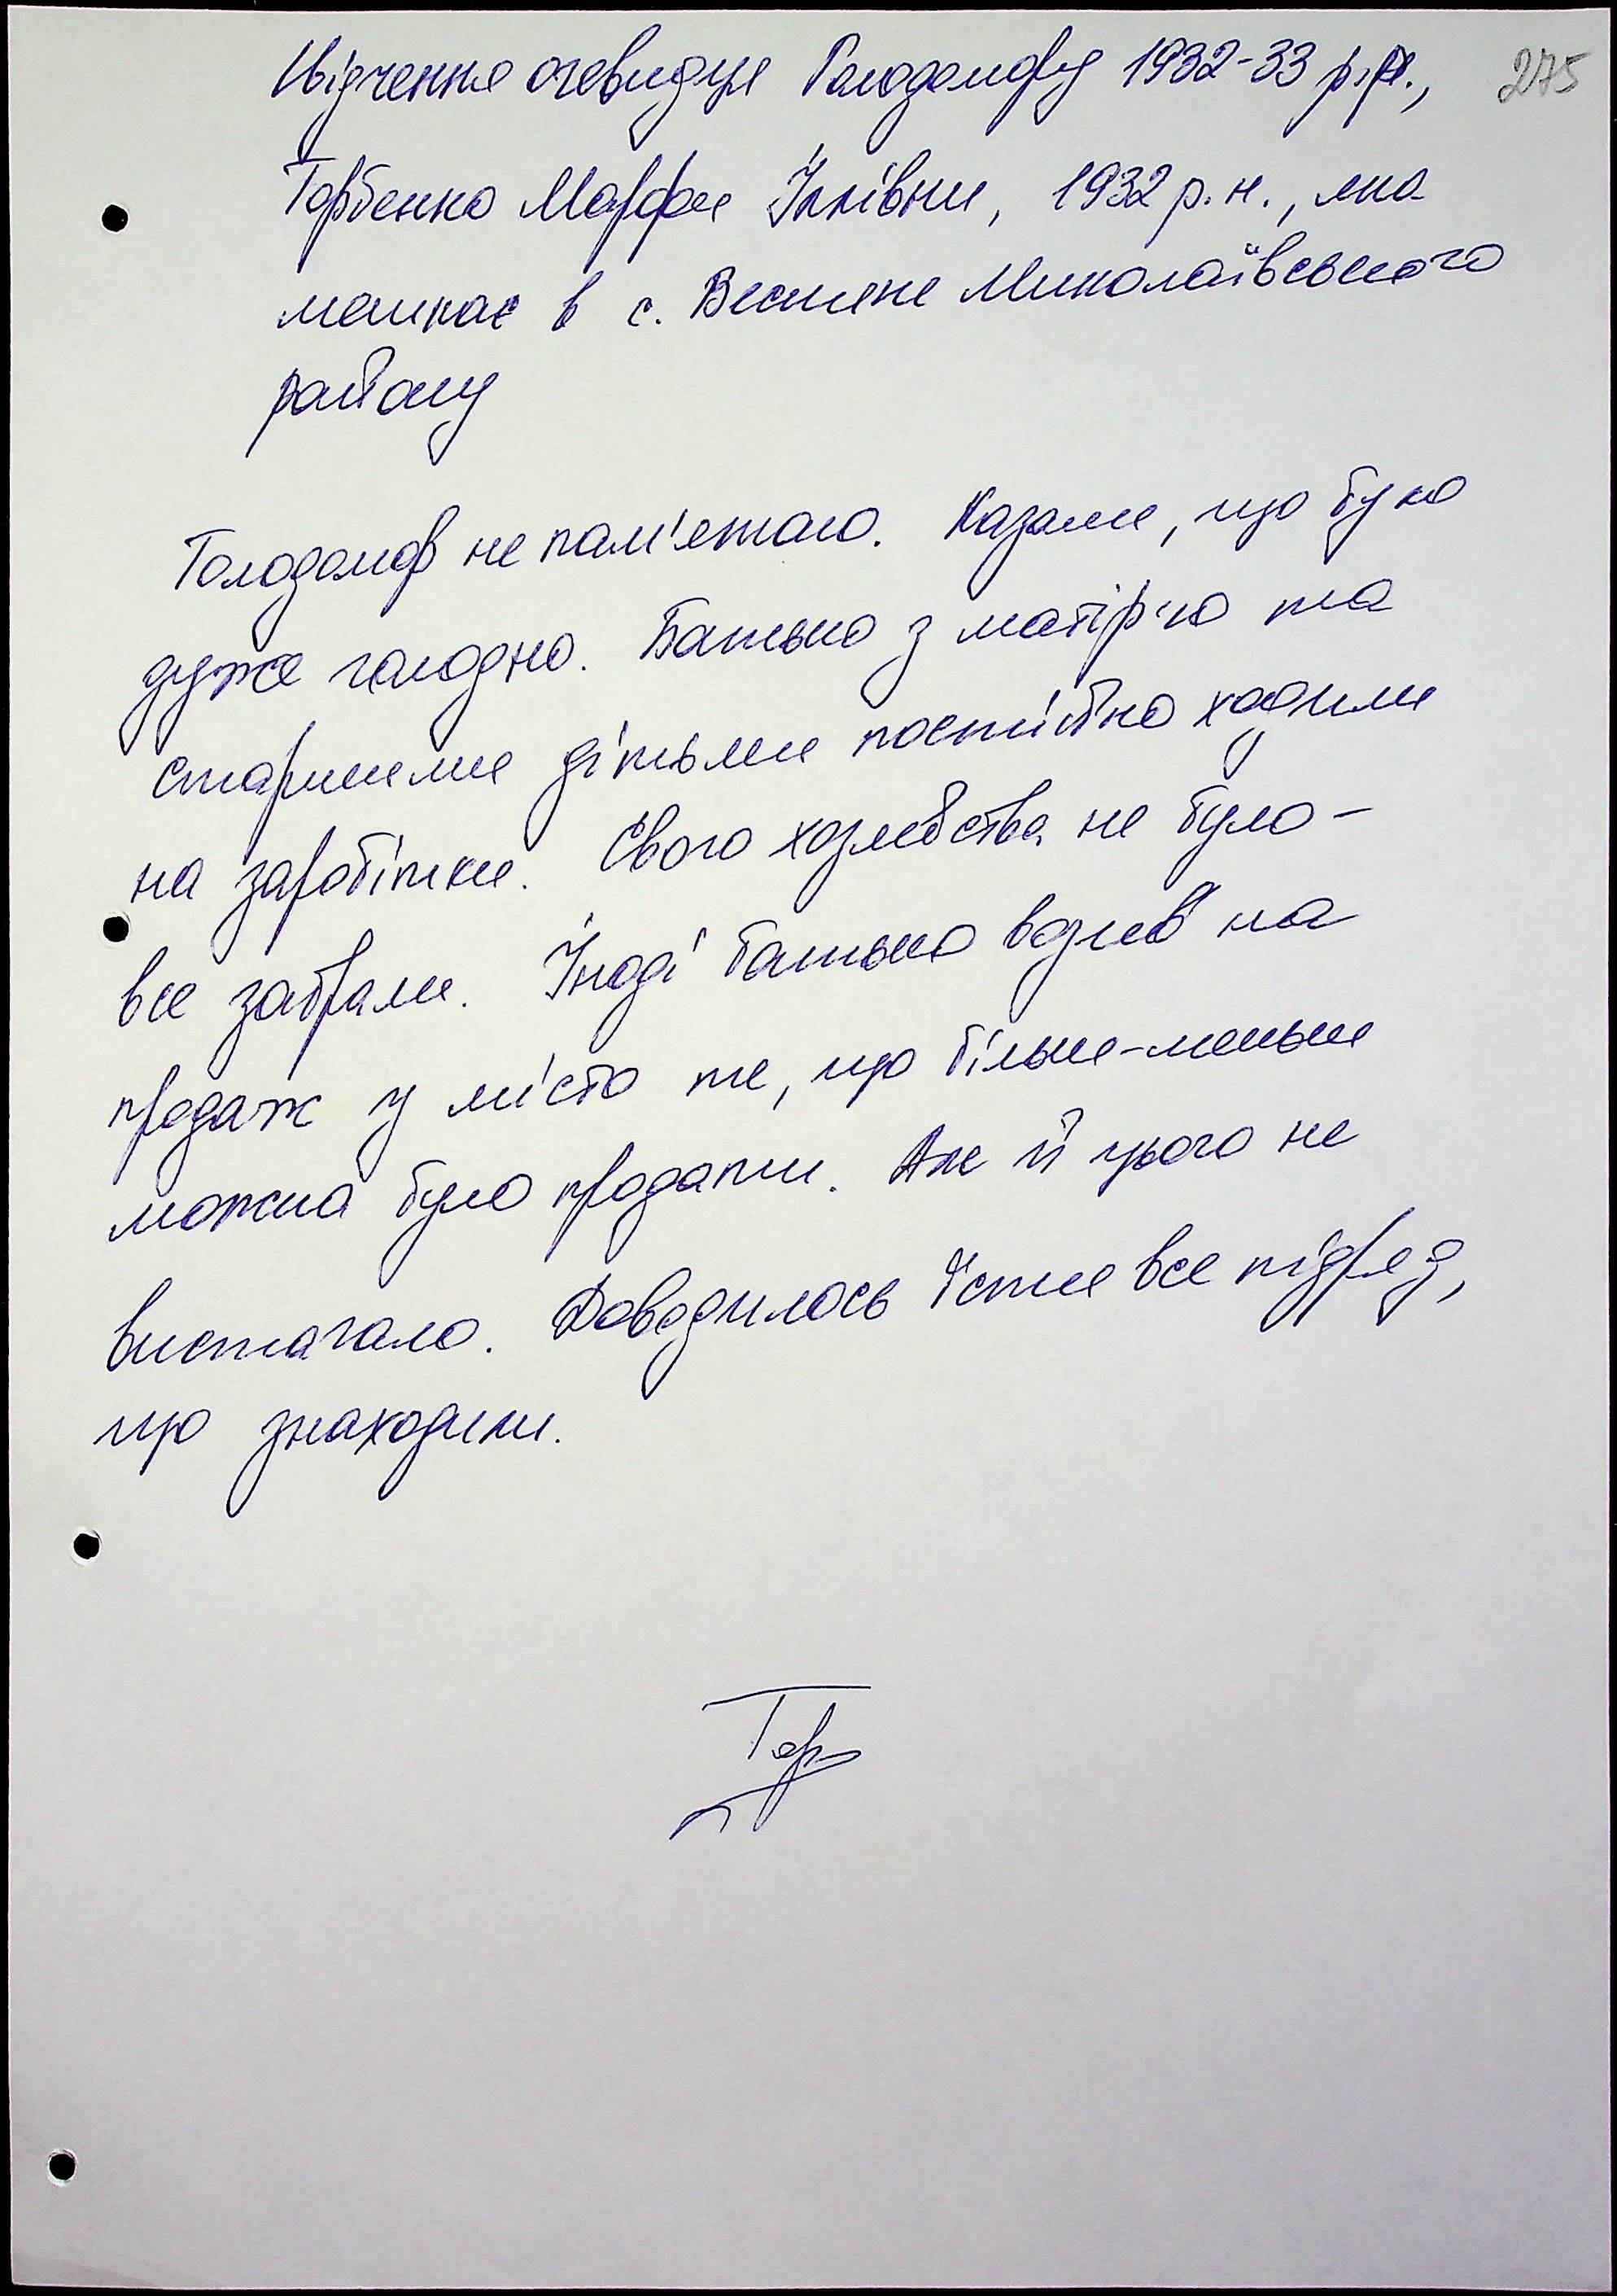 Свідчення очевидця Голодомору 1932-33 р.р., 275
Горбенко Марфи Іллівни, 1932 р.н., яка
мешкає в с. Весняне Миколаївського
району
Голодомор не пам'ятаю. Казали, що було
дуже голодно. Батько з матір'ю та
старшими дітьми постійно ходили
на заробітки. Свого хозяйства не було -
все забрали. Іноді батько возив на
продаж у місто те, що більше-меньше
можна було продати. Але й цього не
вистачало. Доводилось їсти все підряд,
що знаходили.
Гор